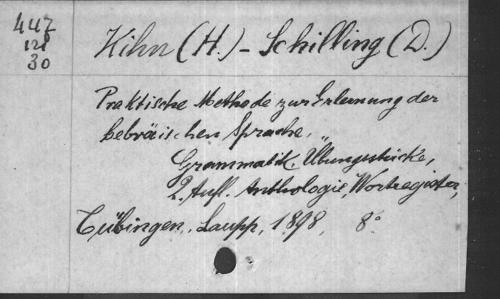 447
128
30
Kihn (H.) - Schilling (D.)
Praktische Methode zur Erlernung der
hebräischen Sprache.
Grammatik, Übungsstücke,
2. Aufl. Anthologie, Wortregister,
Tübingen, Laupp, 1898, 8°